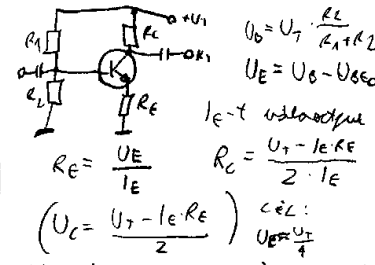 +U_T
R_1
R_C
K_i
R_2
R_E
U_B = U_T · R_2 / (R_1 + R_2)
U_E = U_B - U_BE0
I_E-t választjuk
R_E = U_E / I_E
R_C = (U_T - I_E · R_E) / (2 · I_E)
(U_C = (U_T - I_E · R_E) / 2)
cél:
U_E ≈ U_T / 4